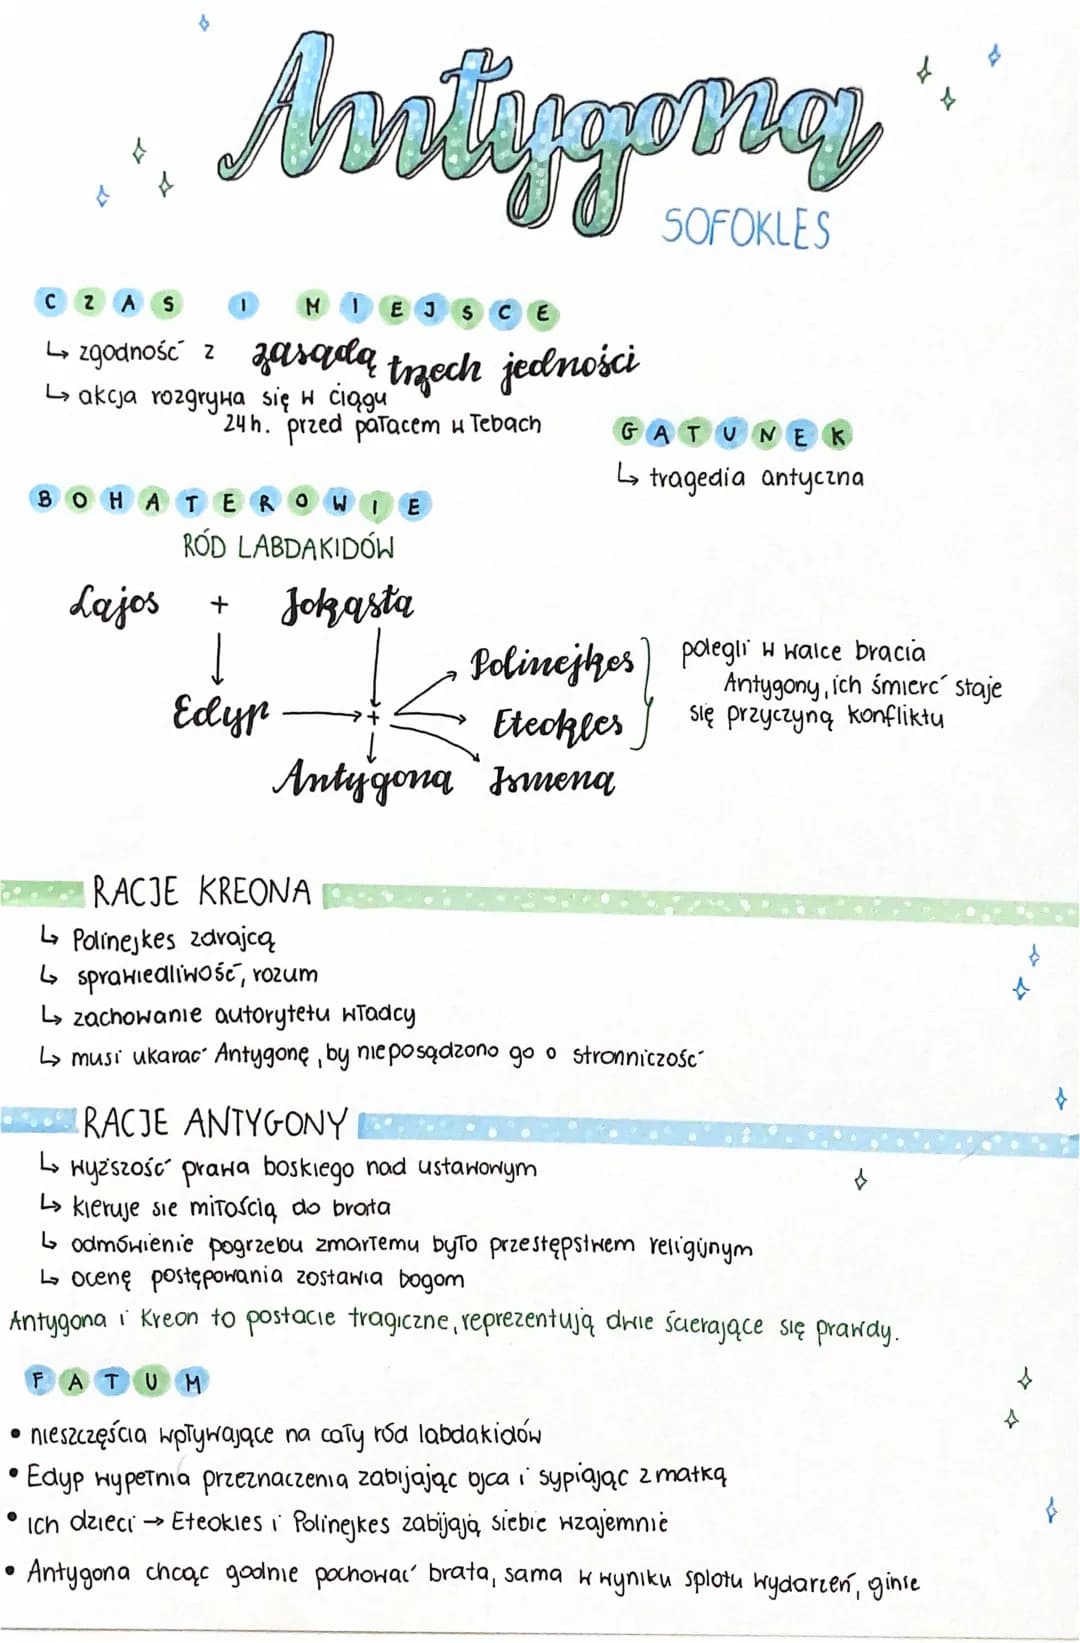 Antygona
SOFOKLES
CZAS I MIEJSCE
↳ zgodność z zasadą trzech jedności
↳ akcja rozgrywa się w ciągu
24h. przed pałacem w Tebach
GATUNEK
↳ tragedia antyczna
BOHATEROWIE
RÓD LABDAKIDÓW
Lajos + Jokasta
Edyp → +
Polinejkes
Eteokles
Antygona Ismena
polegli w walce bracia
Antygony, ich śmierć staje
się przyczyną konfliktu
RACJE KREONA
↳ Polinejkes zdrajcą
↳ sprawiedliwość, rozum
↳ zachowanie autorytetu władcy
↳ musi ukarać Antygonę, by nie posądzono go o stronniczość
RACJE ANTYGONY
↳ wyższość prawa boskiego nad ustawowym
↳ kieruje sie miłością do brata
↳ odmówienie pogrzebu zmarłemu było przestępstwem religijnym
↳ ocenę postępowania zostawia bogom
Antygona i Kreon to postacie tragiczne, reprezentują dwie ścierające się prawdy.
FATUM
• nieszczęścia wpływające na cały ród labdakidów
• Edyp wypełnia przeznaczenia zabijając ojca i sypiając z matką
• ich dzieci → Eteokles i Polinejkes zabijają siebie wzajemnie
• Antygona chcąc godnie pochować brata, sama w wyniku splotu wydarzeń, ginie